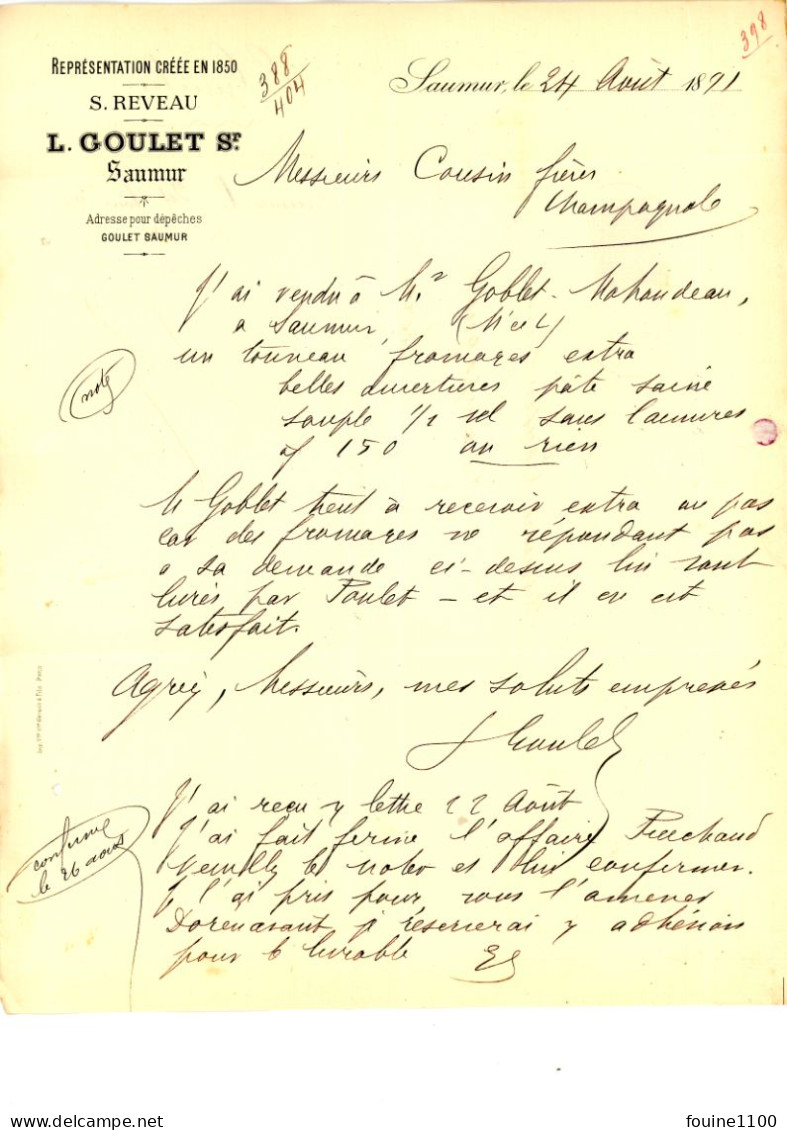 398
REPRÉSENTATION CRÉÉE EN 1850
S. REVEAU
L. GOULET Sr
Saumur
Adresse pour dépêches
GOULET SAUMUR
388
404
Saumur, le 24 Août 1891
Messieurs Cousin frères
Champagnole
J'ai vendu à Mr Goblet-
a Saumur, (M et L)
un tonneau fromages extra
belles ouvertures pâte saine
souple 1/2 sel sans lainures
150 ou rien
noté
M Goblet tient à recevoir extra ou pas
car des fromages ne répondant pas
a sa demande ci-dessus lui sont
livrés par Poulet - et il en est
satisfait.
Agréez, Messieurs, mes saluts empressés
L Goulet
J'ai reçu v lettre 22 Août
J'ai fait ferme l'affaire
Veuillez le noter et lui confirmer.
Je l'ai pris pour vous l'amener
Dorenavant je réserverai v adhésion
pour le livrable
confirmé
le 26 août
delcampe.net
fouine1100